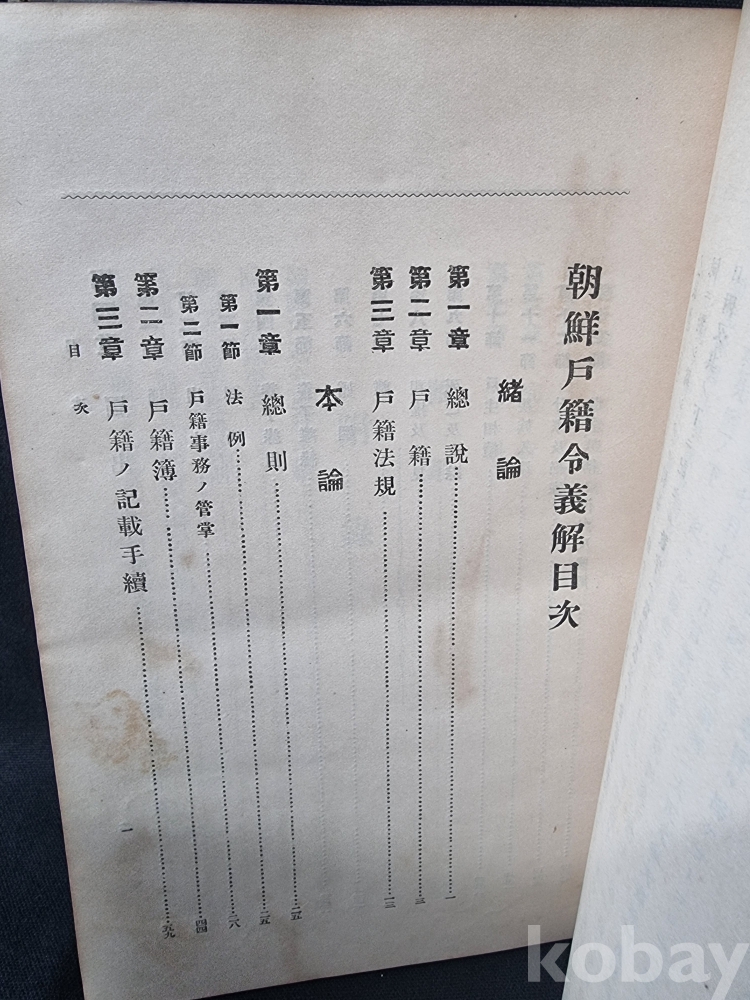 朝鮮戶籍令義解目次
緒論
第一章 總說……一
第二章 戶籍……三
第三章 戶籍法規……一三
本論
第一章 總則……二五
第一節 法例……二五
第二節 戶籍事務ノ管掌……二八
第二章 戶籍簿……四四
第三章 戶籍ノ記載手續……五九
目次 一
kobay